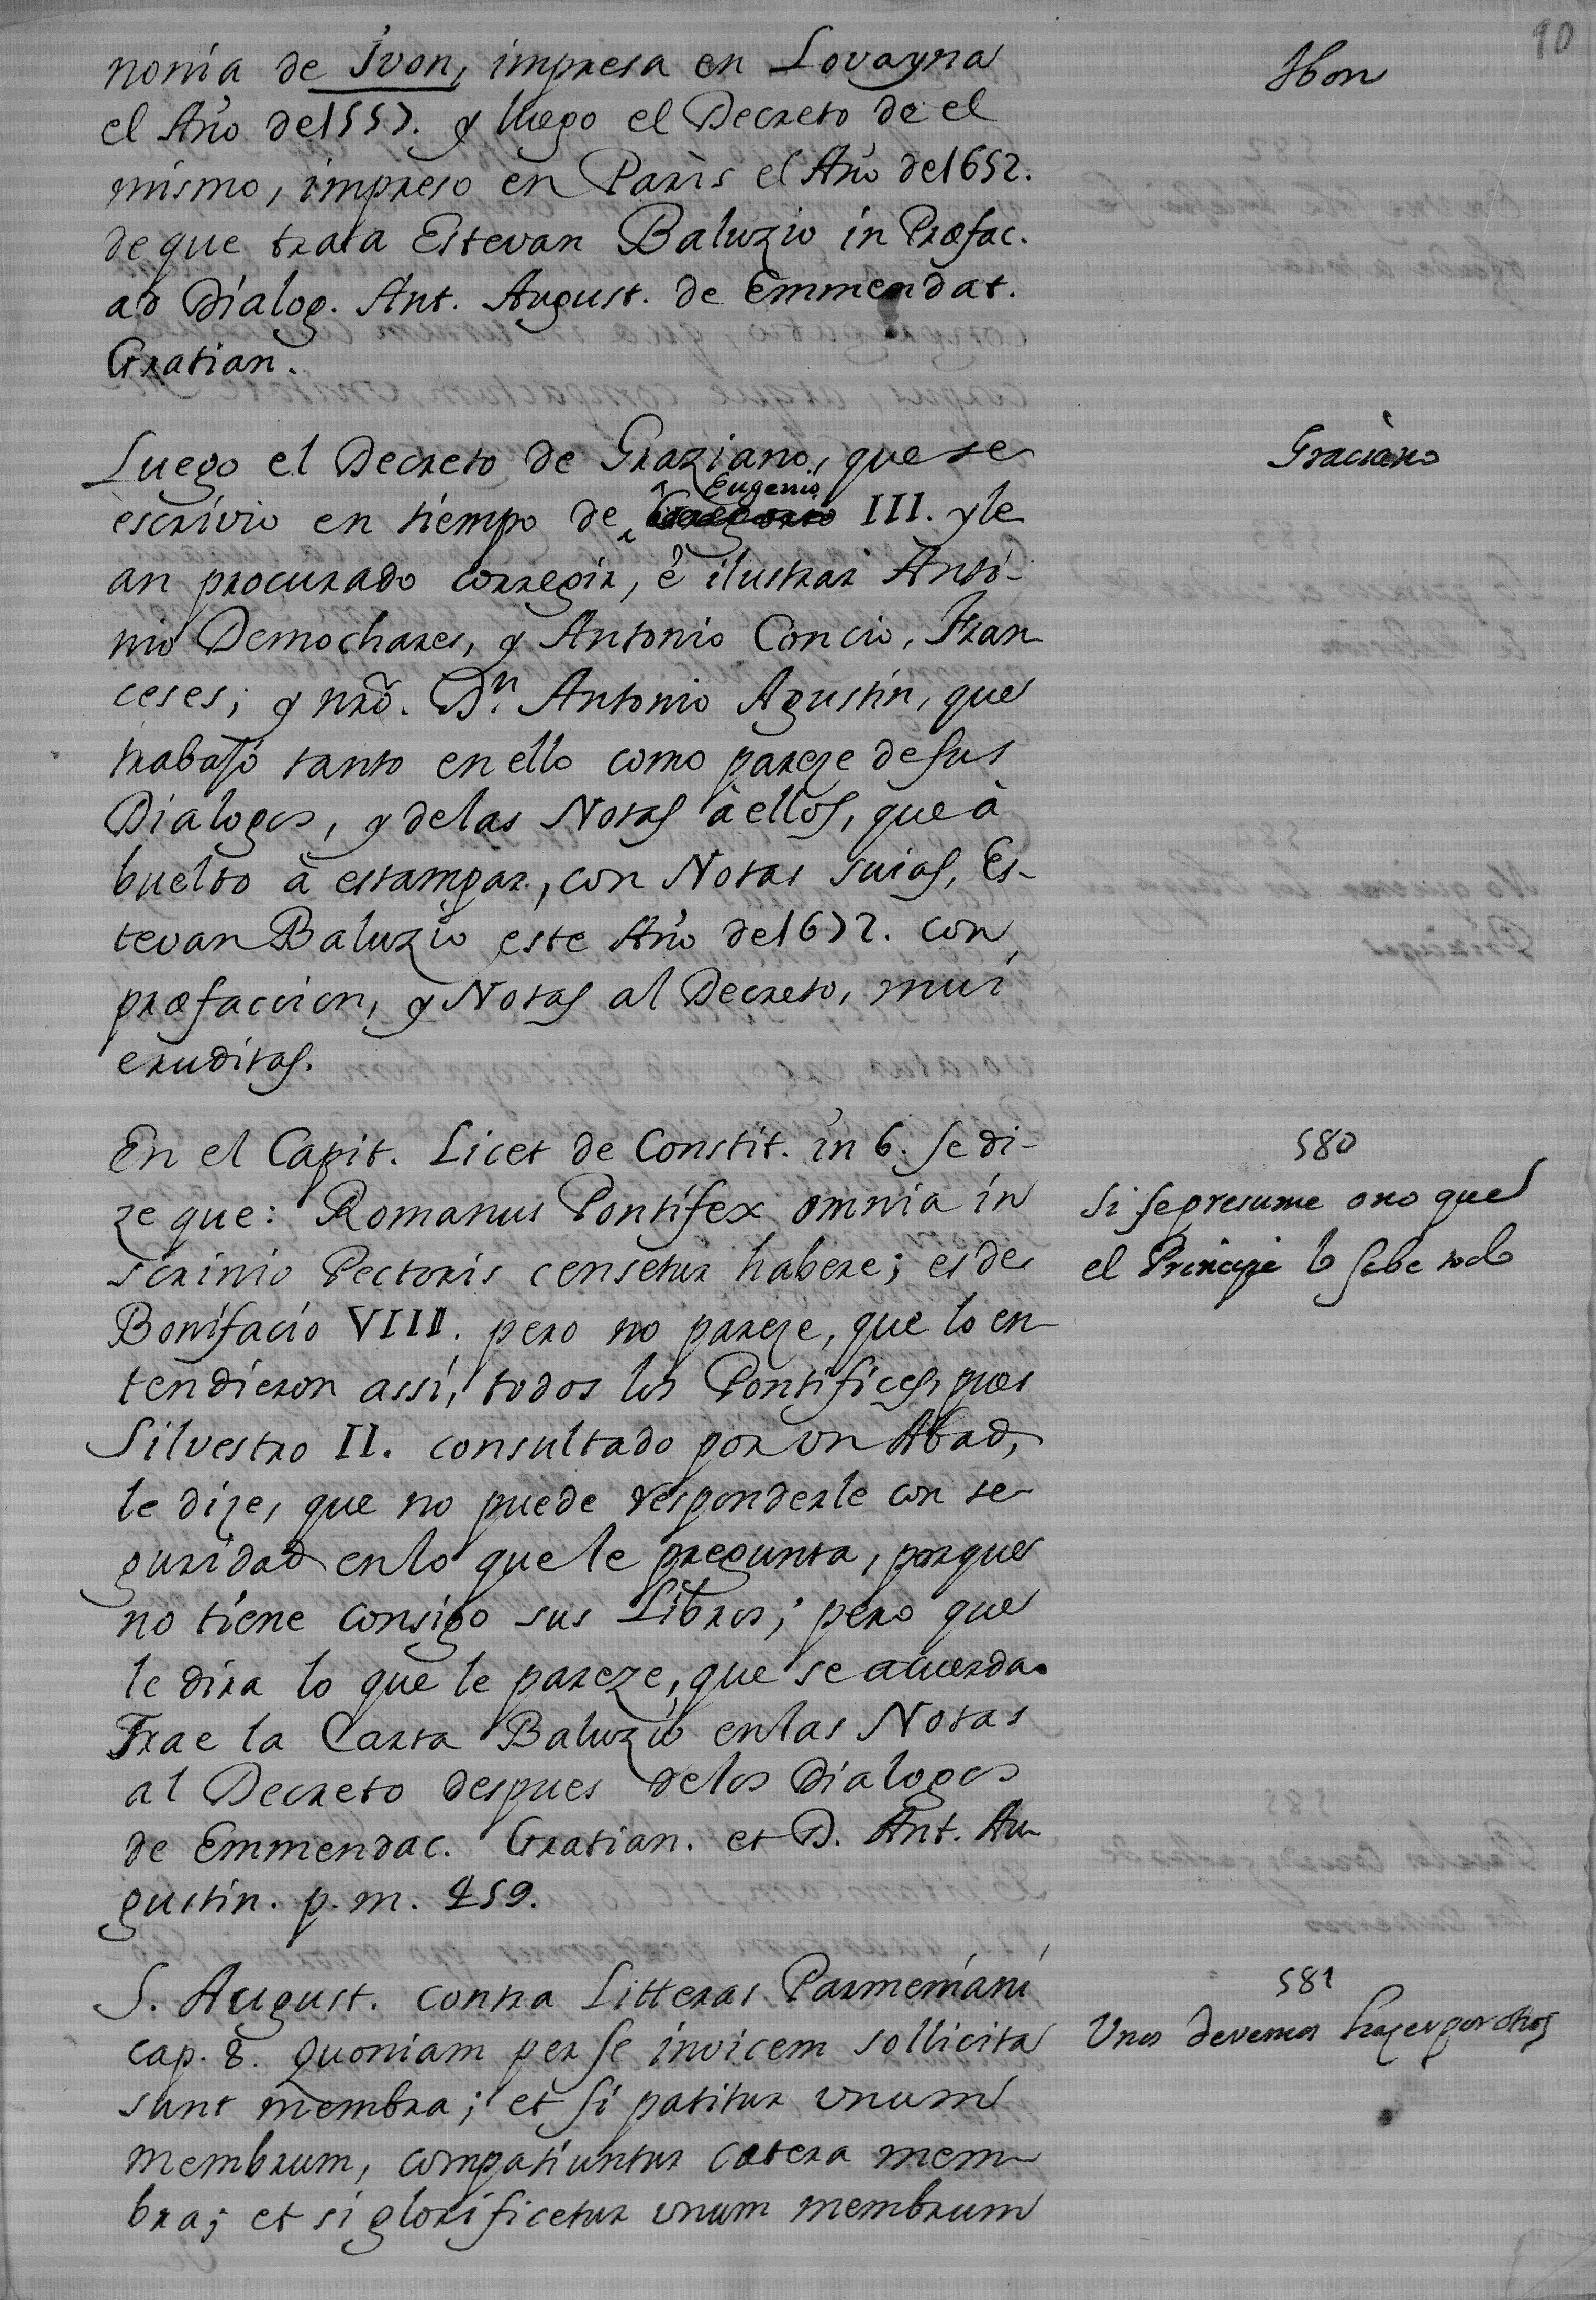 90
nomia de Ivon, impresa en Lovayna
el Año de 1557. y luego el Decreto de el
mismo, impreso en Paris el Año de 1652.
de que trata Estevan Baluzio in Præfac.
ad Dialog. Ant. August. de Emmendat.
Gratian.
Ibon
Luego el Decreto de Graziano, que se
escrivio en tiempo de Eugenio III. y le
an procurado corregir, è ilustrar Anto-
nio Demochares, y Antonio Concio, Fran
ceses; y nrõ. Dn. Antonio Agustin, que
trabajò tanto en ello como pareze de sus
Dialogos, y de las Notas à ellos, que à
buelto à estampar, con Notas suias, Es-
tevan Baluzio este Año de 1672. con
præfaccion, y Notas al Decreto, mui
eruditas.
Graciano
En el Capit. Licet de Constit. in 6. se di-
ze que: Romanus Pontifex omnia in
scrinio Pectoris censetur habere; es de
Bonifacio VIII. pero no pareze, que lo en-
tendieron assi, todos los Pontifices, pues
Silvestro II. consultado por un Abad,
le dize, que no puede responderle con se-
guridad en lo que le pregunta, porque
no tiene consigo sus Libros; pero que
le dira lo que le pareze, que se acuerda.
Trae la Carta Baluzio en las Notas
al Decreto despues de los Dialogos
de Emmendac. Gratian. et D. Ant. Au
gustin. p. m. 459.
580
Si se presume o no que
el Principe lo sabe todo
S. August. contra Litteras Parmeniani
cap. 8. Quoniam per se invicem sollicita
sunt membra; et si patitur unum
membrum, compatiuntur cætera mem
bra; et si glorificetur unum membrum
581
Unos devemos hazer por otros